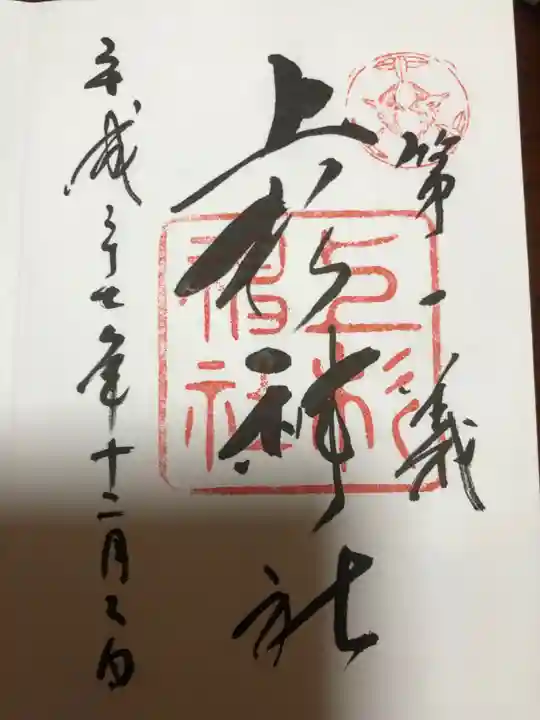 第一義
上杉神社
上杉
神社
平成二十七年十二月日